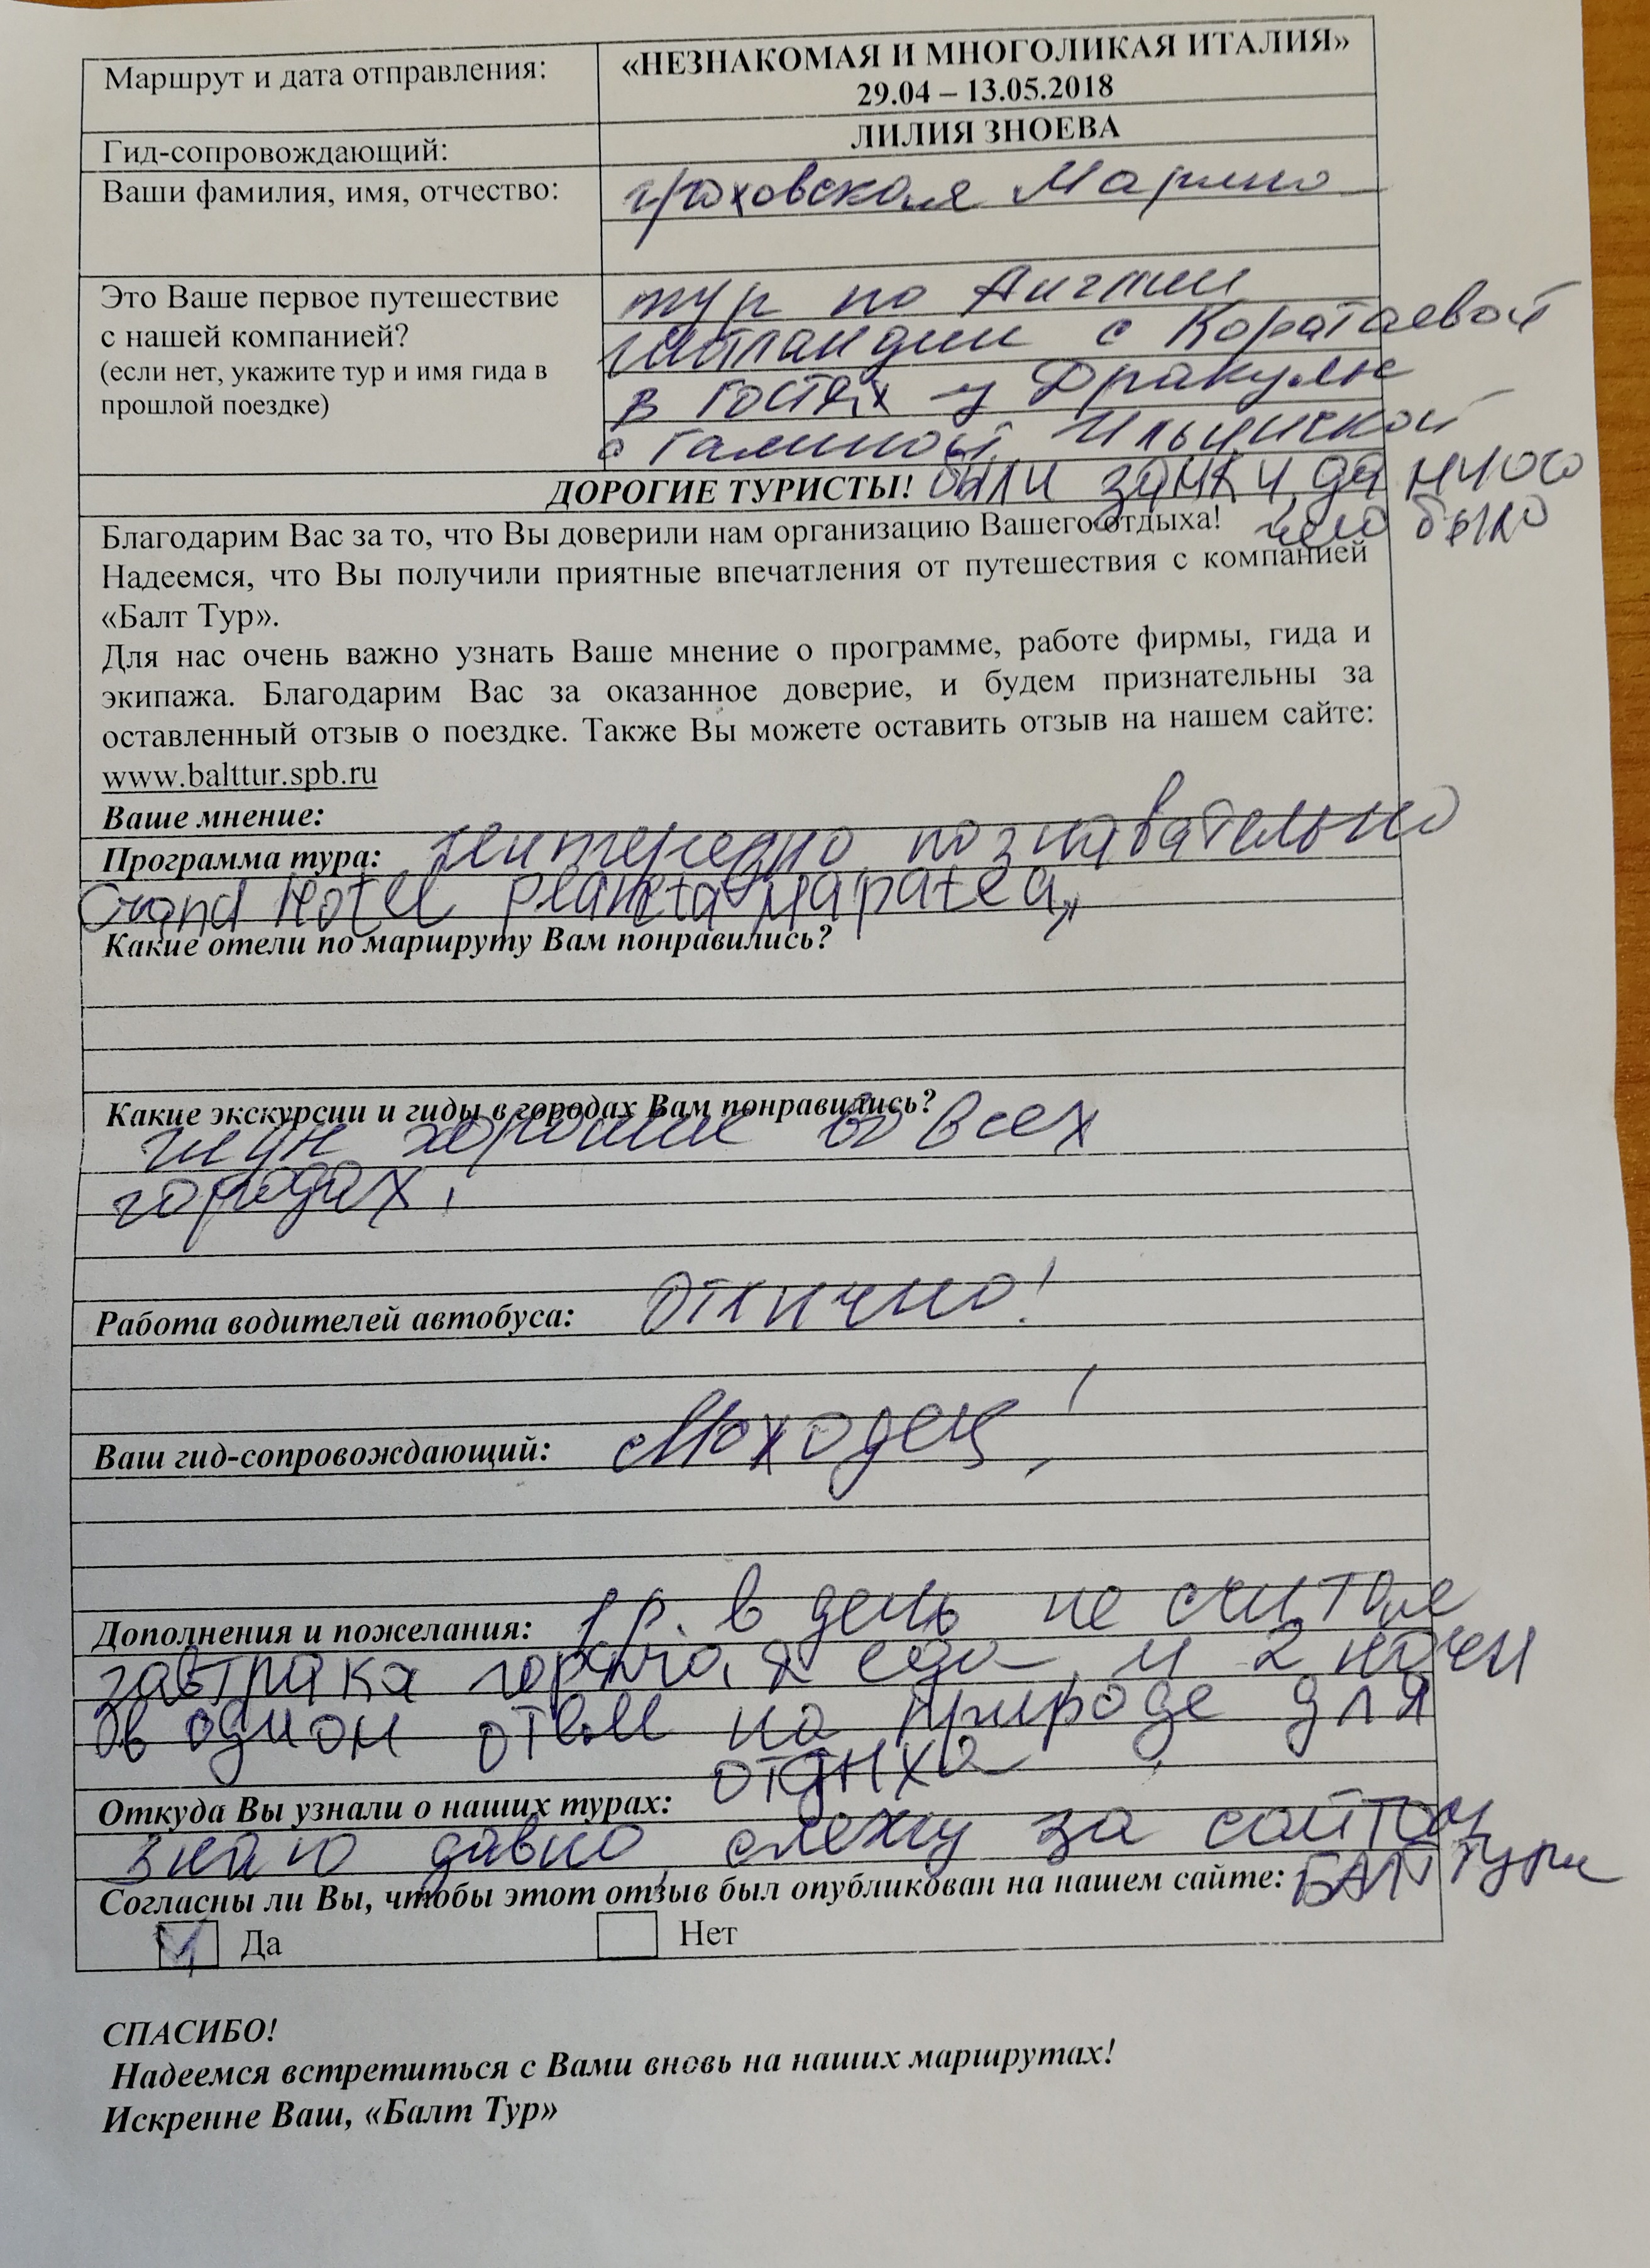 Маршрут и дата отправления: «НЕЗНАКОМАЯ И МНОГОЛИКАЯ ИТАЛИЯ»
29.04 – 13.05.2018
Гид-сопровождающий: ЛИЛИЯ ЗНОЕВА
Ваши фамилия, имя, отчество: Марина
Это Ваше первое путешествие
с нашей компанией?
(если нет, укажите тур и имя гида в
прошлой поездке)
тур по Англии
Шотландии с Коратаевой
в гостях у Дракулы
с Галиной Ильинской
ДОРОГИЕ ТУРИСТЫ! были замки да много
чего было
Благодарим Вас за то, что Вы доверили нам организацию Вашего отдыха!
Надеемся, что Вы получили приятные впечатления от путешествия с компанией
«Балт Тур».
Для нас очень важно узнать Ваше мнение о программе, работе фирмы, гида и
экипажа. Благодарим Вас за оказанное доверие, и будем признательны за
оставленный отзыв о поездке. Также Вы можете оставить отзыв на нашем сайте:
www.balttur.spb.ru
Ваше мнение:
Программа тура: интересно познавательно
Grand Hotel Planeta Mapatea,
Какие отели по маршруту Вам понравились?
Какие экскурсии и гиды в городах Вам понравились?
гиды хорошие во всех
городах.
Работа водителей автобуса: Отлично!
Ваш гид-сопровождающий: Молодец!
Дополнения и пожелания: 1 р. в день не считая
завтрака горячая еда и 2 ночи
в одном отели на природе для
отдыха
Откуда Вы узнали о наших турах:
знаю давно, слежу за сайтом
БАЛТ Тура
Согласны ли Вы, чтобы этот отзыв был опубликован на нашем сайте:
Да Нет
СПАСИБО!
Надеемся встретиться с Вами вновь на наших маршрутах!
Искренне Ваш, «Балт Тур»